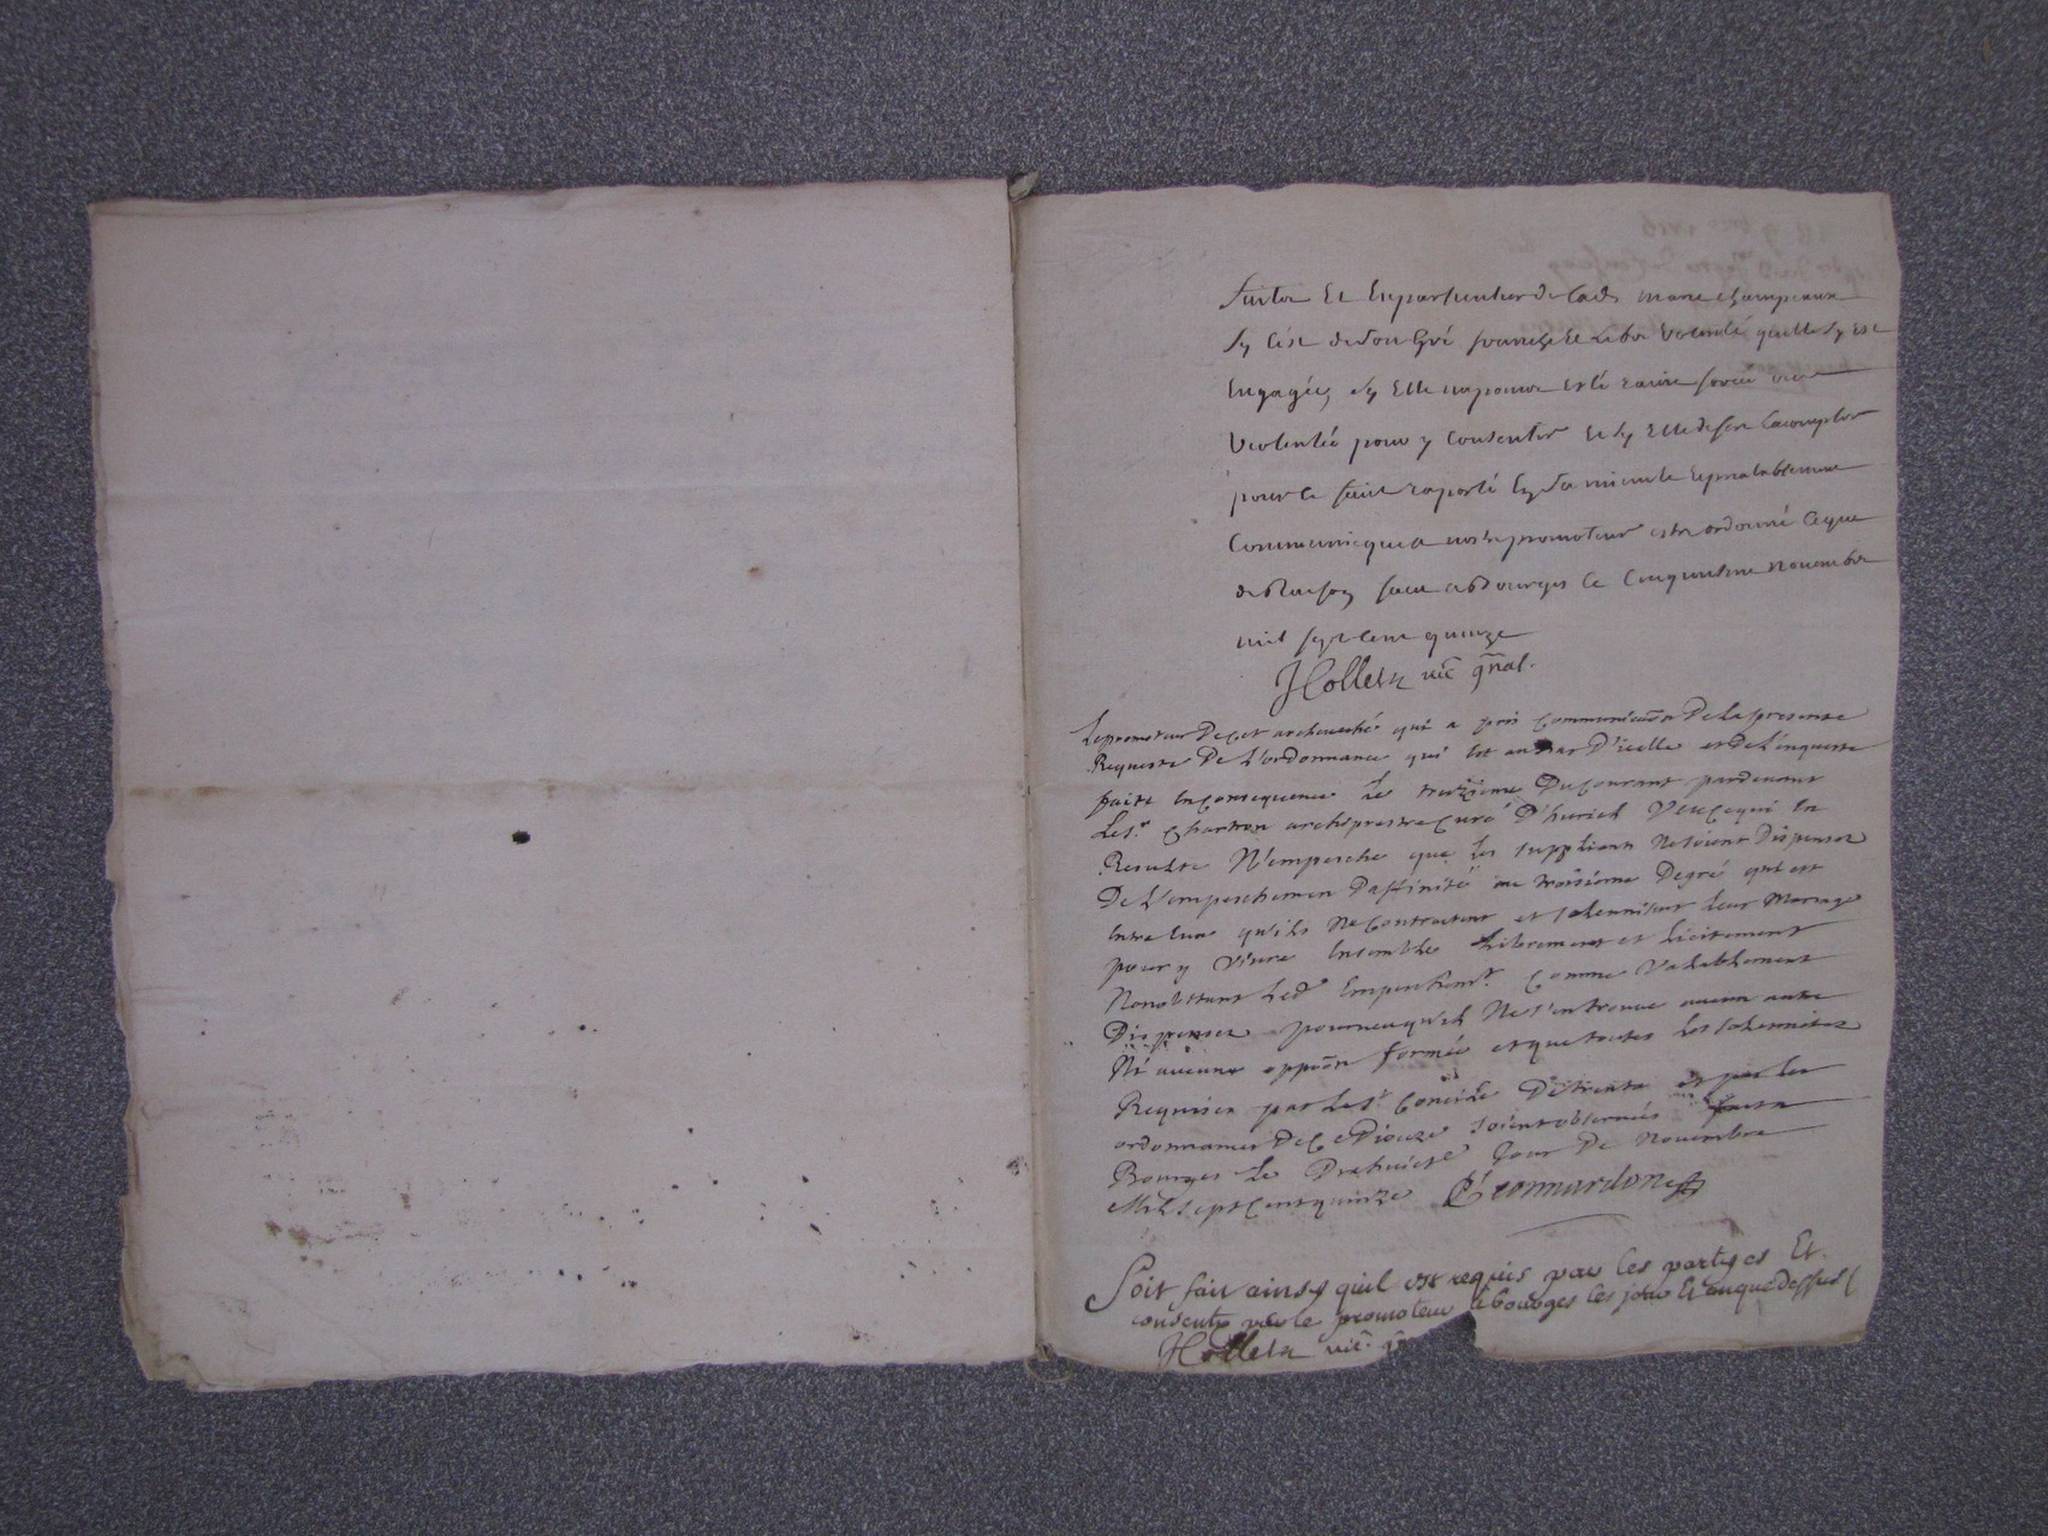 suitte Et En particulier de lad. marie champeaux
sy c'est de son gré franche Et Libre volonté quelle sy est
Engagée, sy Elle na point Esté ravie forcée ou
violentée pour y consentir Et sy Elle desire laccomplir
pour ce fait raporté En sa minutte Et prealablement
Communicqué a nostre promoteur estre ordonné ce que
de Raison fait a Bourges le cinquiesme novembre
mil sept cent quinze
Hollets vic̃ gñal.
Le promoteur De cet archevesché qui a pris communica͠on De la presente
Requeste De L'ordonnance qui est au bas D'icelle et de L'enqueste
faite En Consequence Le treizieme Du Courant pardevant
Le S.r Chartron archiprestre Curé D'huriel Veu Ce qui En
Resulte N'empesche que les suppliants Ne soient Dispensez
De L'empeschemen D'affinité au troisieme Degré qui est
Entre Eux qu'ils Ne Contractent et solennisent leur Mariage
pour y vivre Ensemble Librement et licitement
Nonobstant Led. Empeschem.t Comme Valablement
Dispensez pourveu qu'il Ne s'en trouve aucun autre
Ni aucune oppo͠on formée et que toutes les solennitez
Requises par Le S.t Concile De trente et par les
ordonnances De Ce Dioceze soient observées fait a
Bourges Le Dixhuict.e Jour De Novembre
Mil sept Cent quinze Leonnardon
Soit fait ainsy quil est requis par les partyes Et
consenty par le promoteur a bourges les jour Et an que dessus
Hollets vic̃.